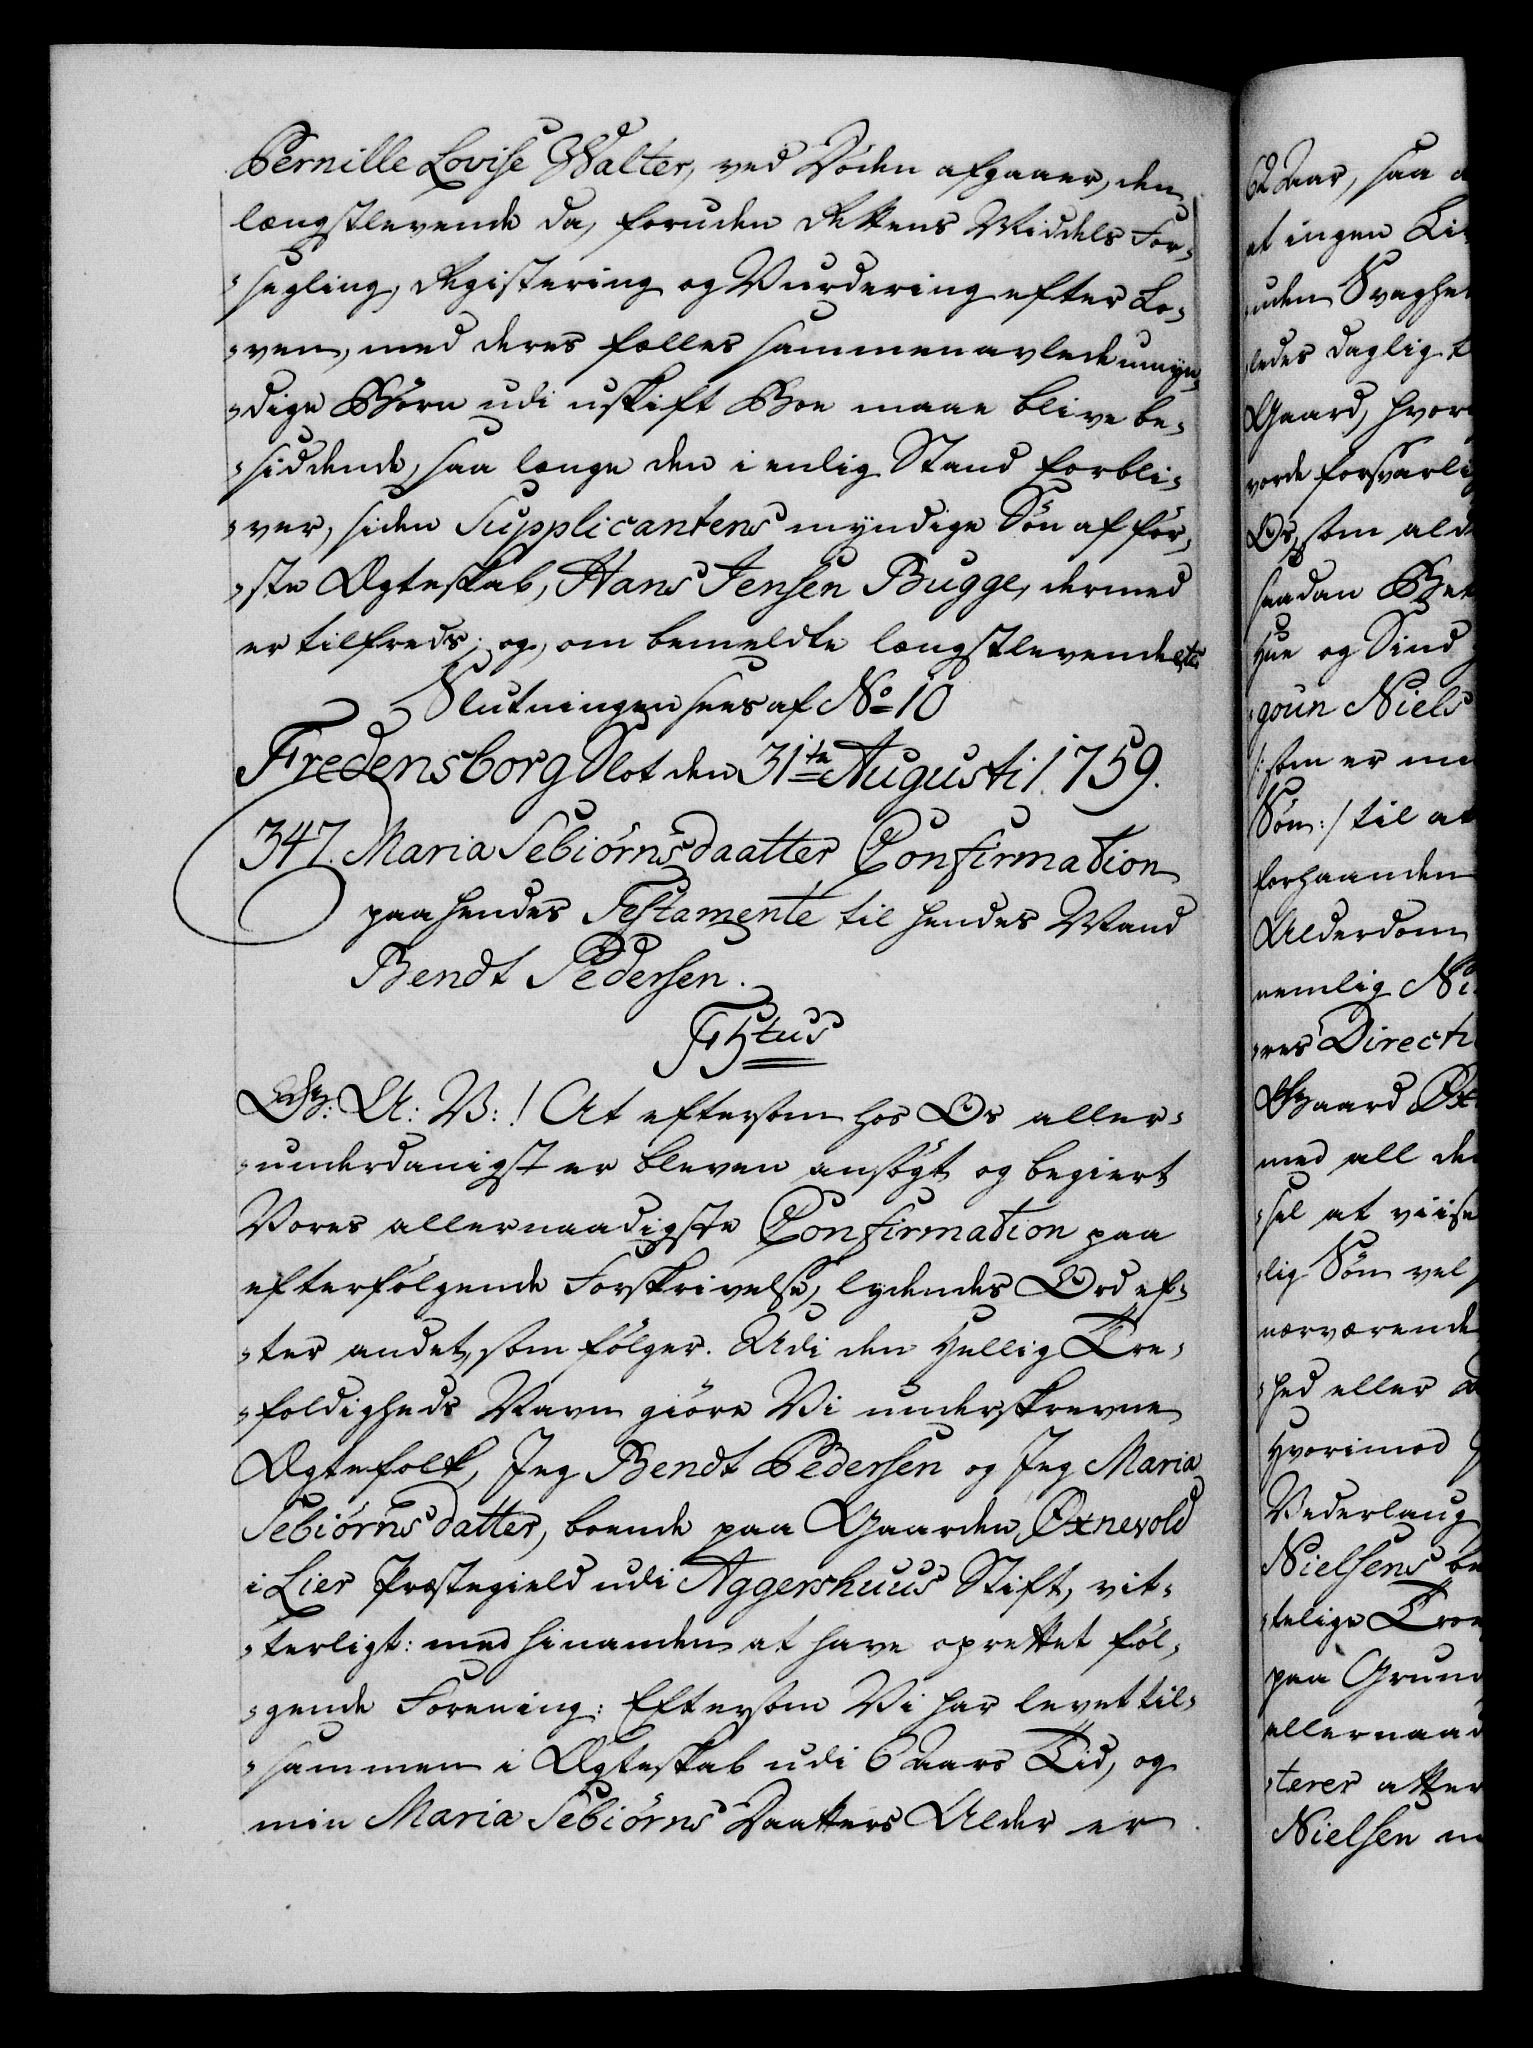 Pernille Lovise Walter, ved Døden afgaaer, den
længstlevende da, foruden Rettens Middels For-
-segling, Registering og Vurdering efter Lo-
-ven, med deres fælles sammenavlede umyn-
-dige Børn udi uskift Boe maae blive be-
-siddende, saa længe den i enlig Stand forbli-
-ver, siden Supplicantens myndige Søn af før-
-ste Ægteskab, Hans Jensen Bugge, dermed
er tilfreds; og, om bemeldte længstlevende etc
Slutningen sees af No 10
Fredensborg Slot den 31te Augusti 1759.
347. Maria Sebiørnsdaatter Confirmation
paa hendes Testamente til hendes Mand
Bendt Pedersen.
F 5tus
G: A: V: ! At eftersom hos Os aller-
-underdanigst er bleven ansøgt og begiert
Vores allernaadigste Confirmation paa
efterfølgende Forskrivelse, lydendes Ord ef-
-ter andet, som følger. Udi den Hellig Tre-
-foldigheds Navn giøre Vi underskrevne
Ægtefolk, Jeg Bendt Pedersen og Jeg Maria
Sebiørns datter, boende paa Gaarden Øxnevold
i Lier Præstegield udi Aggershuus Stift, vit-
-terligt: med hinanden at have oprettet føl-
-gende Forening: Eftersom Vi har levet til-
-sammen i Ægteskab udi 6 Aars Tid, og
min Maria Sebiørns Daatters Alder er
62 Aar, saa
at ingen Li
uden Svaghe
ledes daglig
Gaard, hvor
vorde forsvarli
Os, som ald
saadan
Hue og Sind
goun Niels
/: som er mi
Søn :/ til at
forhaanden
Alderdom
nemlig Ni
-res Directi
Gaard Øx
med all de
-sel at viise
-lig Søn vel
nærværende
-hed eller
Hvorimod
Vederlaug
Nielsens be
-telige Troe
paa Grund
allernaad
-terer atter
Nielsen